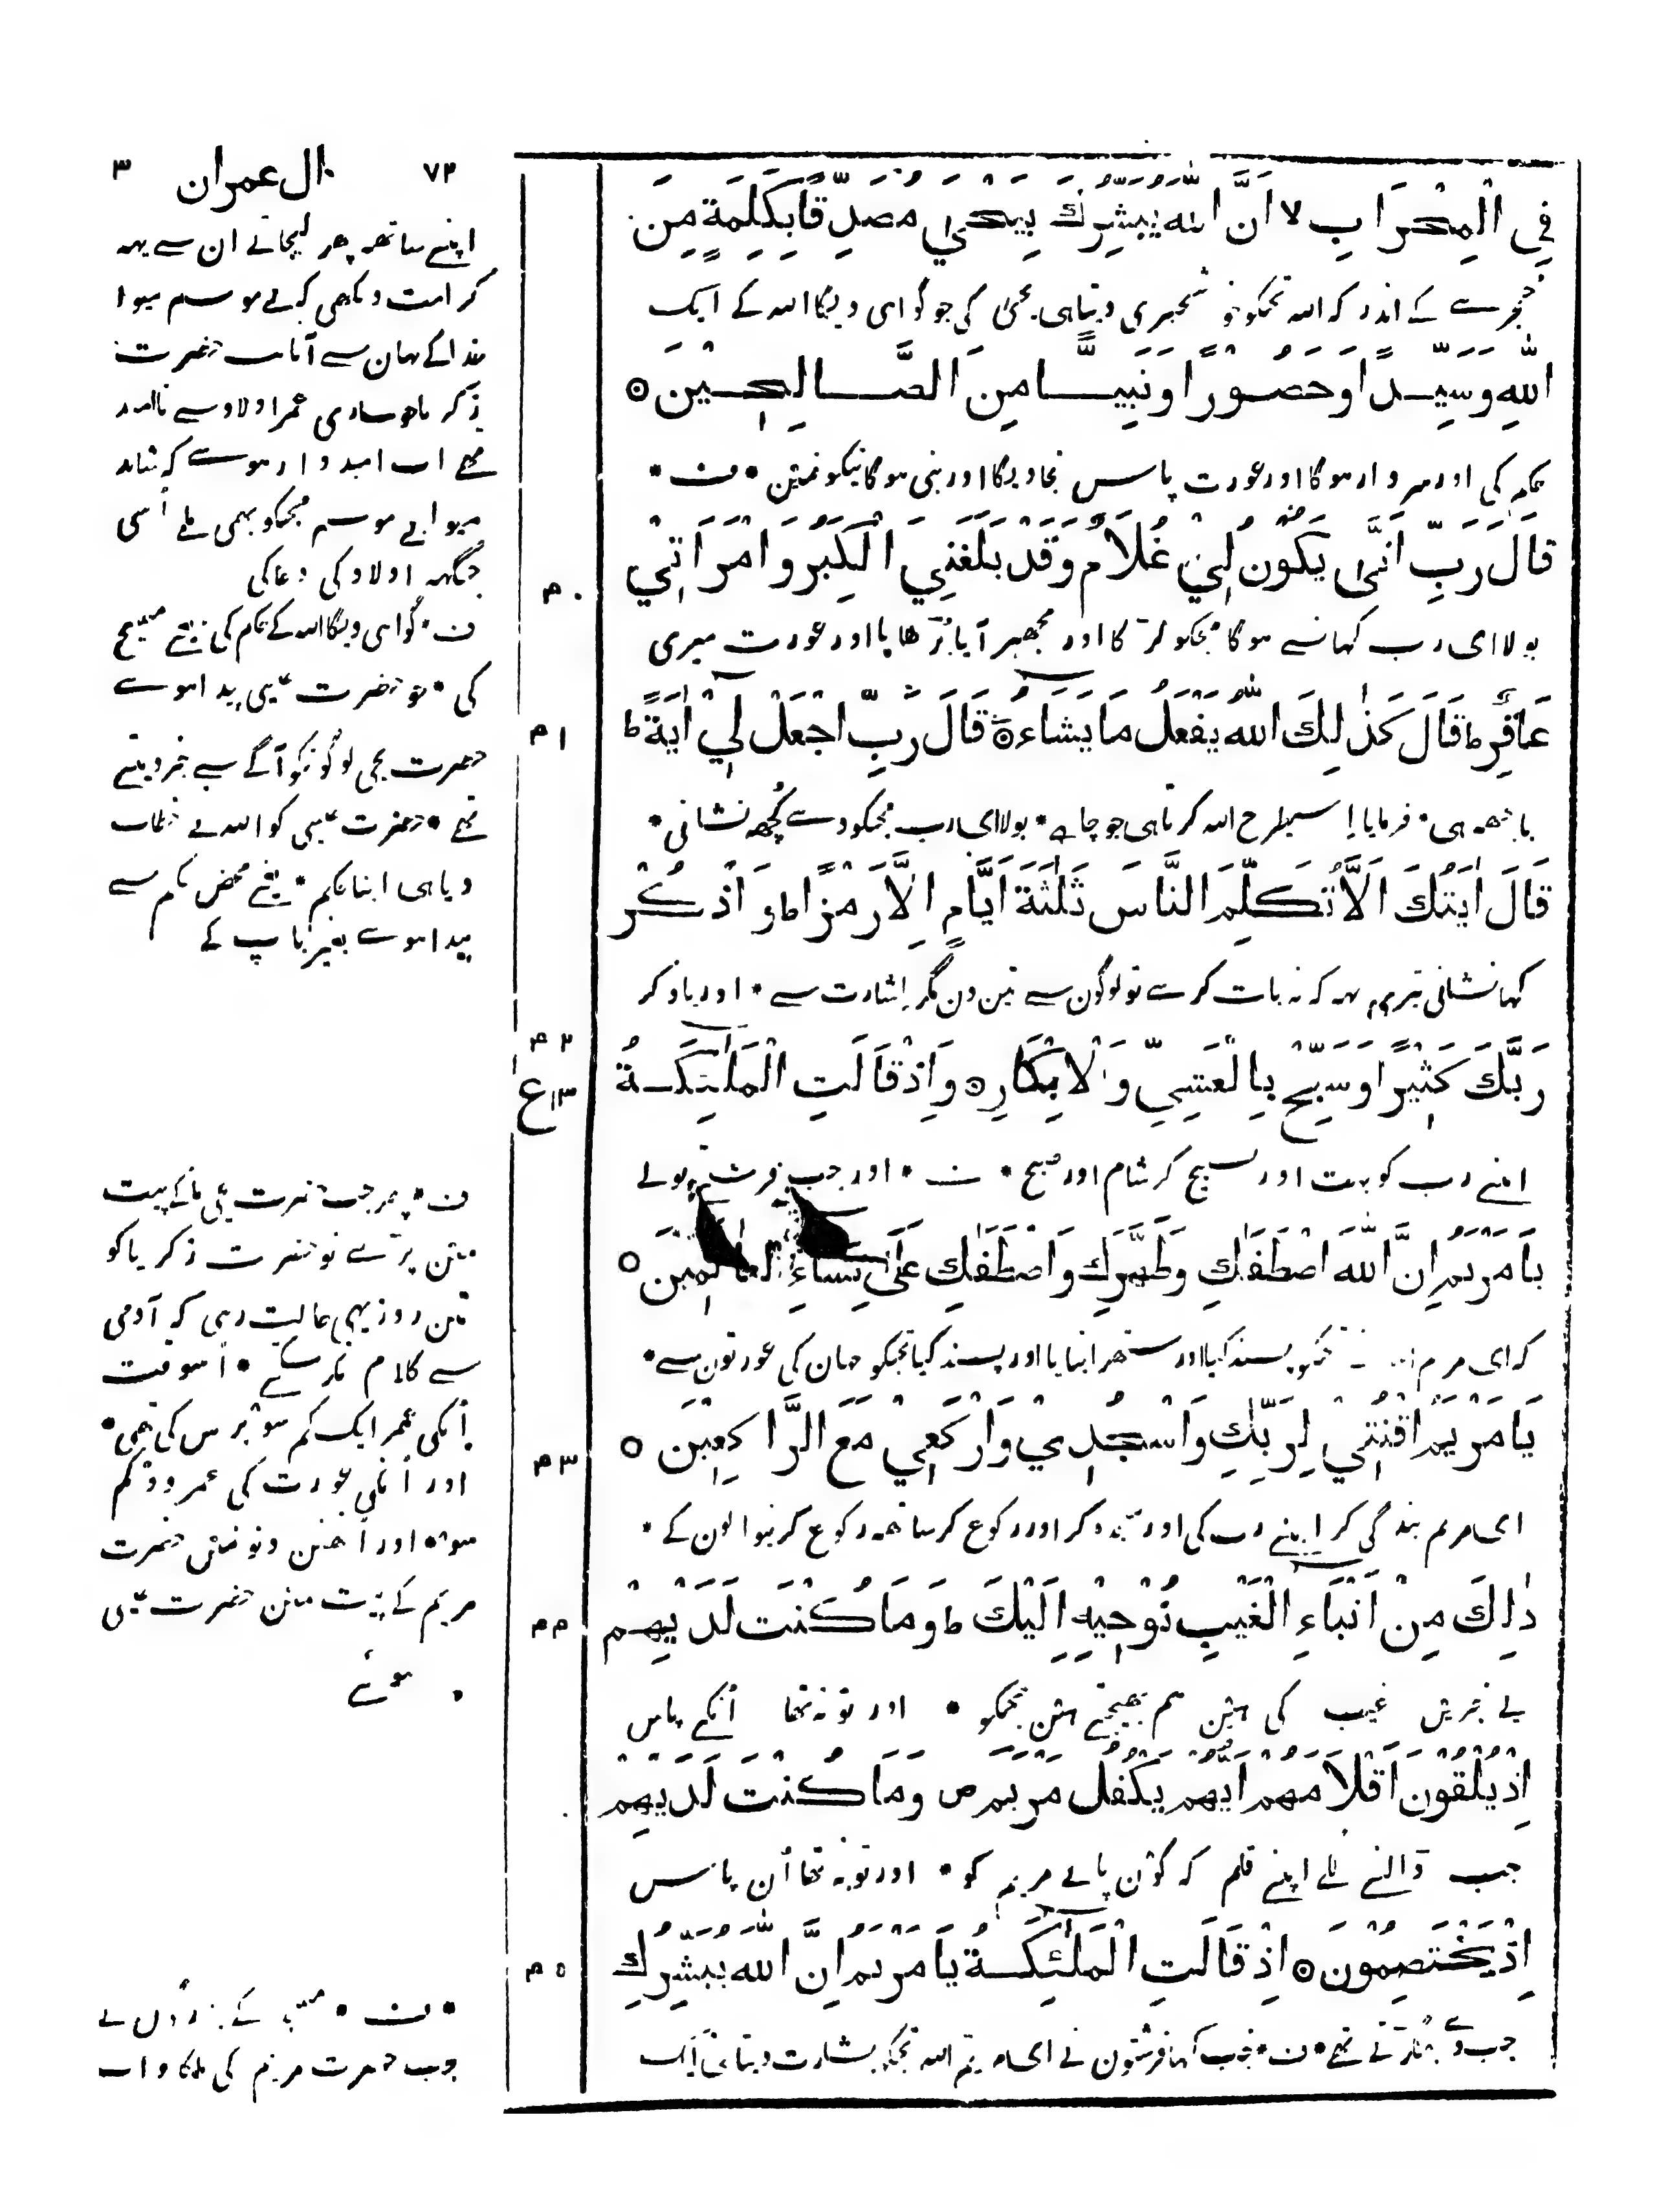 ٧٣ ال عمران ٣
فِي الْمِحْرَابِ لا اَنَّ اللّٰهَ يُبَشِّرُكَ بِيَحْيٰى مُصَدِّقًا بِكَلِمَةٍ مِنَ
حجرے کے اندر کہ اللہ تجکو خوشخبری دیتاہی یحیٰ کی جو گواہی دیگا اللہ کے ایک
اللّٰهِ وَسَيِّدًا وَحَصُوْرًا وَنَبِيًّا مِنَ الصَّالِحِيْنَ ۝
حکم کی اور سردار ہوگا اور عورت پاس نجاویگا اور نبی ہوگا نیکونمین * ف *
٤٠ قَالَ رَبِّ اَنّٰى يَكُوْنُ لِيْ غُلَامٌ وَقَدْ بَلَغَنِيَ الْكِبَرُ وَامْرَاَتِيْ
بولا ای رب کہانسے ہوگا مجکو لڑکا اور مجھپر آیا بڑھاپا اور عورت میری
٤١ عَاقِرٌ ط قَالَ كَذٰلِكَ اللّٰهُ يَفْعَلُ مَا يَشَاءُ ۝ قَالَ رَبِّ اجْعَلْ لِيْ اٰيَةً ط
بانجھہ ہی * فرمایا اسیطرح اللہ کرتاہی جو چاہے * بولا ای رب مجکو دے کچھہ نشانی *
قَالَ اٰيَتُكَ اَلَّا تُكَلِّمَ النَّاسَ ثَلٰثَةَ اَيَّامٍ اِلَّا رَمْزًا ط وَاذْكُرْ
کہا نشانی تیری یہہ کہ نہ بات کرے تو لوگون سے تین دن مگر اشارت سے * اور یاد کر
٤٢ ١٣ ع رَبَّكَ كَثِيْرًا وَسَبِّحْ بِالْعَشِيِّ وَالْاِبْكَارِ ۝ وَاِذْ قَالَتِ الْمَلٰئِكَةُ
اپنے رب کو بہت اور تسبیح کر شام اور صبح * ف * اور جب فرشتے بولے
يَا مَرْيَمُ اِنَّ اللّٰهَ اصْطَفٰكِ وَطَهَّرَكِ وَاصْطَفٰكِ عَلٰى نِسَاءِ الْعَالَمِيْنَ ۝
کہ ای مریم اللہ نے تجکو پسند کیا اور ستھرا بنایا اور پسند کیا تجکو جہان کی عورتون سے *
٤٣ يَا مَرْيَمُ اقْنُتِيْ لِرَبِّكِ وَاسْجُدِيْ وَارْكَعِيْ مَعَ الرَّاكِعِيْنَ ۝
ای مریم بندگی کر اپنے رب کی اور سجدہ کر اور رکوع کر ساتھہ رکوع کرنیوالون کے *
٤٤ ذٰلِكَ مِنْ اَنْبَاءِ الْغَيْبِ نُوْحِيْهِ اِلَيْكَ ط وَمَا كُنْتَ لَدَيْهِمْ
یے خبرین غیب کی ہین ہم بھیجتے ہین تجکو * اور تو نہ تھا انکے پاس
اِذْ يُلْقُوْنَ اَقْلَامَهُمْ اَيُّهُمْ يَكْفُلُ مَرْيَمَ ص وَمَا كُنْتَ لَدَيْهِمْ
جب ڈالنے لگے اپنے قلم کہ کون پالے مریم کو * اور تو نہ تھا اُن پاس
٤٥ اِذْ يَخْتَصِمُوْنَ ۝ اِذْ قَالَتِ الْمَلٰئِكَةُ يَا مَرْيَمُ اِنَّ اللّٰهَ يُبَشِّرُكِ
جب وے جھگڑتے تھے * ف * جب کہا فرشتون نے ای مریم اللہ تجکو بشارت دیتاہی ایک
اپنے ساتھہ پھر لیجاتے ان سے یہہ
کرامت دیکھی کہ بے موسم میوا
خدا کے یہان سے آتا حضرت
زکریا ساری عمر اولاد سے ناامید
تھے اب امیدوار ہوے کہ شاید
میوا بے موسم مجکو بھی ملے اُسی
جگہہ اولاد کی دعا کی
ف * گواہی دیگا اللہ کے حکم کی یعنے مسیح
کی * جو حضرت عیسی پیدا ہوے
حضرت یحی لوگونکو آگے سے خبر دیتے
تھے * حضرت عیسی کو اللہ نے خطاب
دیاہی اپنا حکم * یعنے محض حکم سے
پیدا ہوے بغیر باپ کے
ف * پھر جب حضرت یحی ماکے پیٹ
مین پڑے تو حضرت زکریا کو
تین روز یہی حالت رہی کہ آدمی
سے کلام نکر سکے * اُسوقت
اُنکی عمر ایک کم سو برس کی تھی *
اور اُنکی عورت کی عمر دو کم
سو * اور اُنھین دنونمین حضرت
مریم کے پیٹ مین حضرت عیسی
ہوئے
* ف * مسجد کے بزرگون نے
جب حضرت مریم کی ماکا خواب